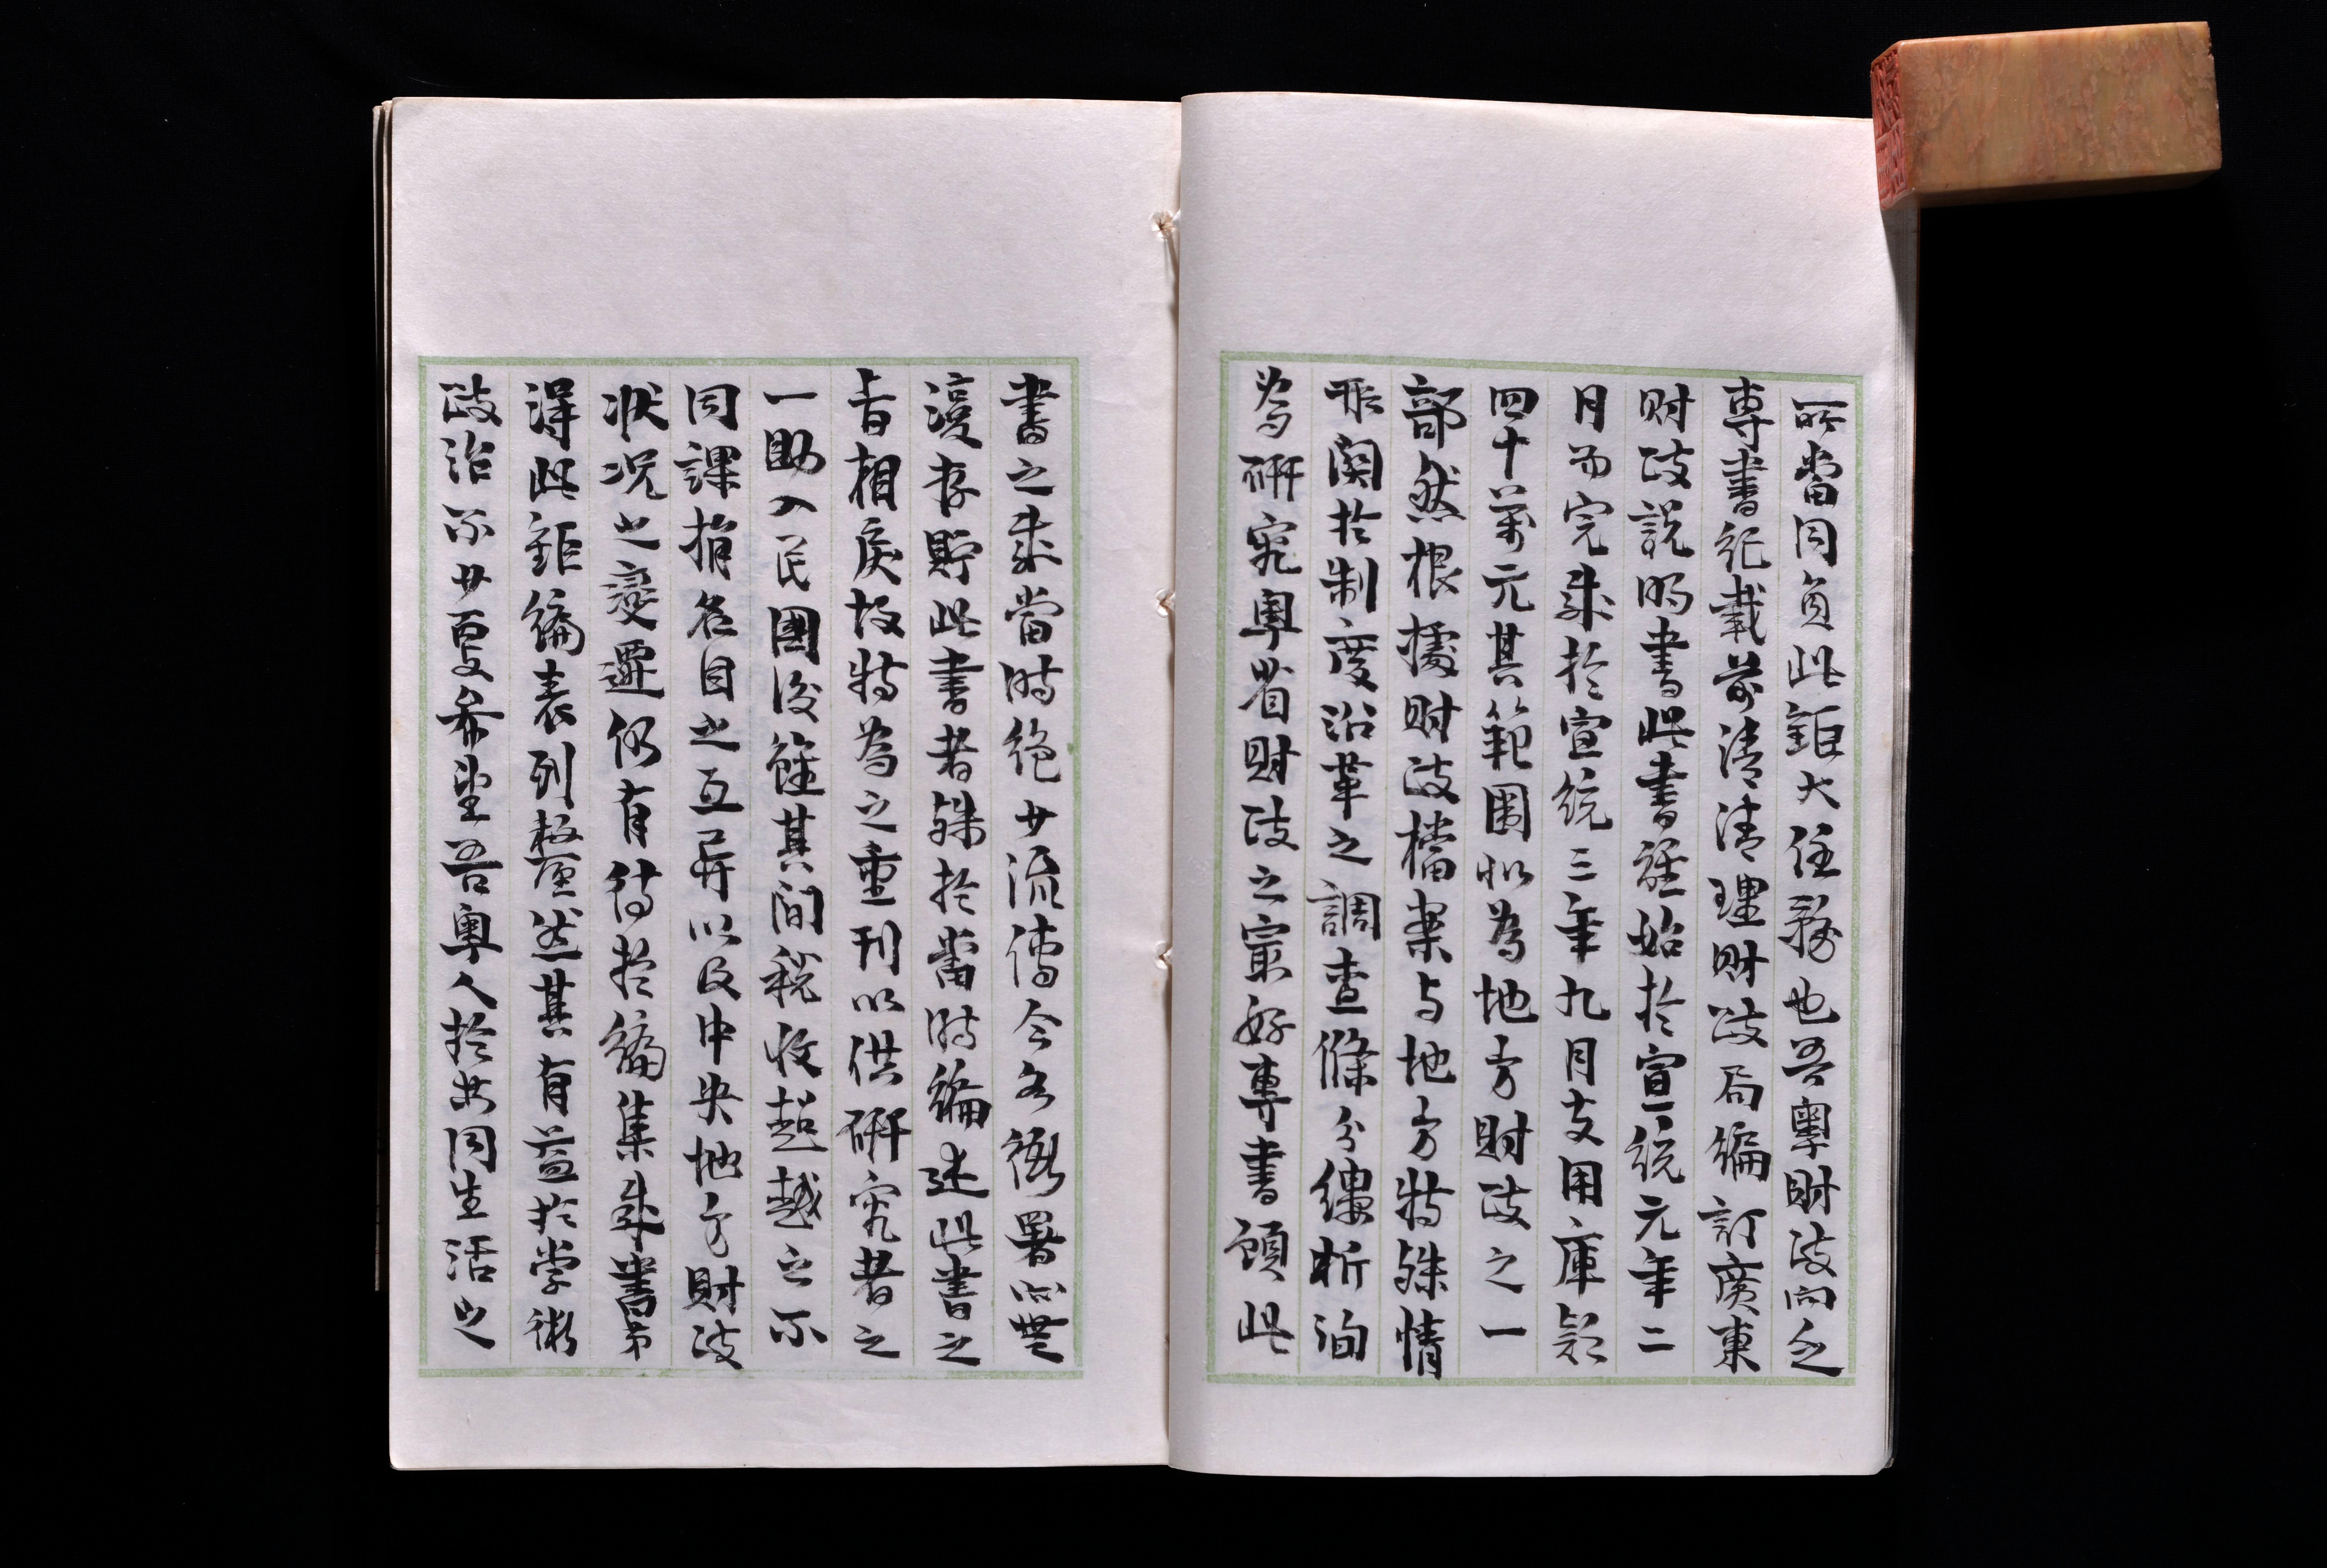 所當同負此鉅大任務也吾粵財政向乏
專書紀載前清清理財政局編訂廣東
財政説明書此書經始於宣統元年二
月而完成於宣統三年九月支用庫款
四十萬元其範圍以為地方財政之一
部然根據財政檔案与地方特殊情
形関於制度沿革之調查條分縷析洵
為研究粤省財政之最好專書顧此
書之成當時絶少流傳今各衙署亦無
復存貯此書者殊於當時編述此書之
旨相戾故特為之重刊以供研究者之
一助入民國後雖其间税收超越之不
同課捐名目之互異以及中央地方財政
状况之變遷仍有待於編集成書第
得此鉅編表列整然其有益於學術
政治不少更希望吾粤人於共同生活之